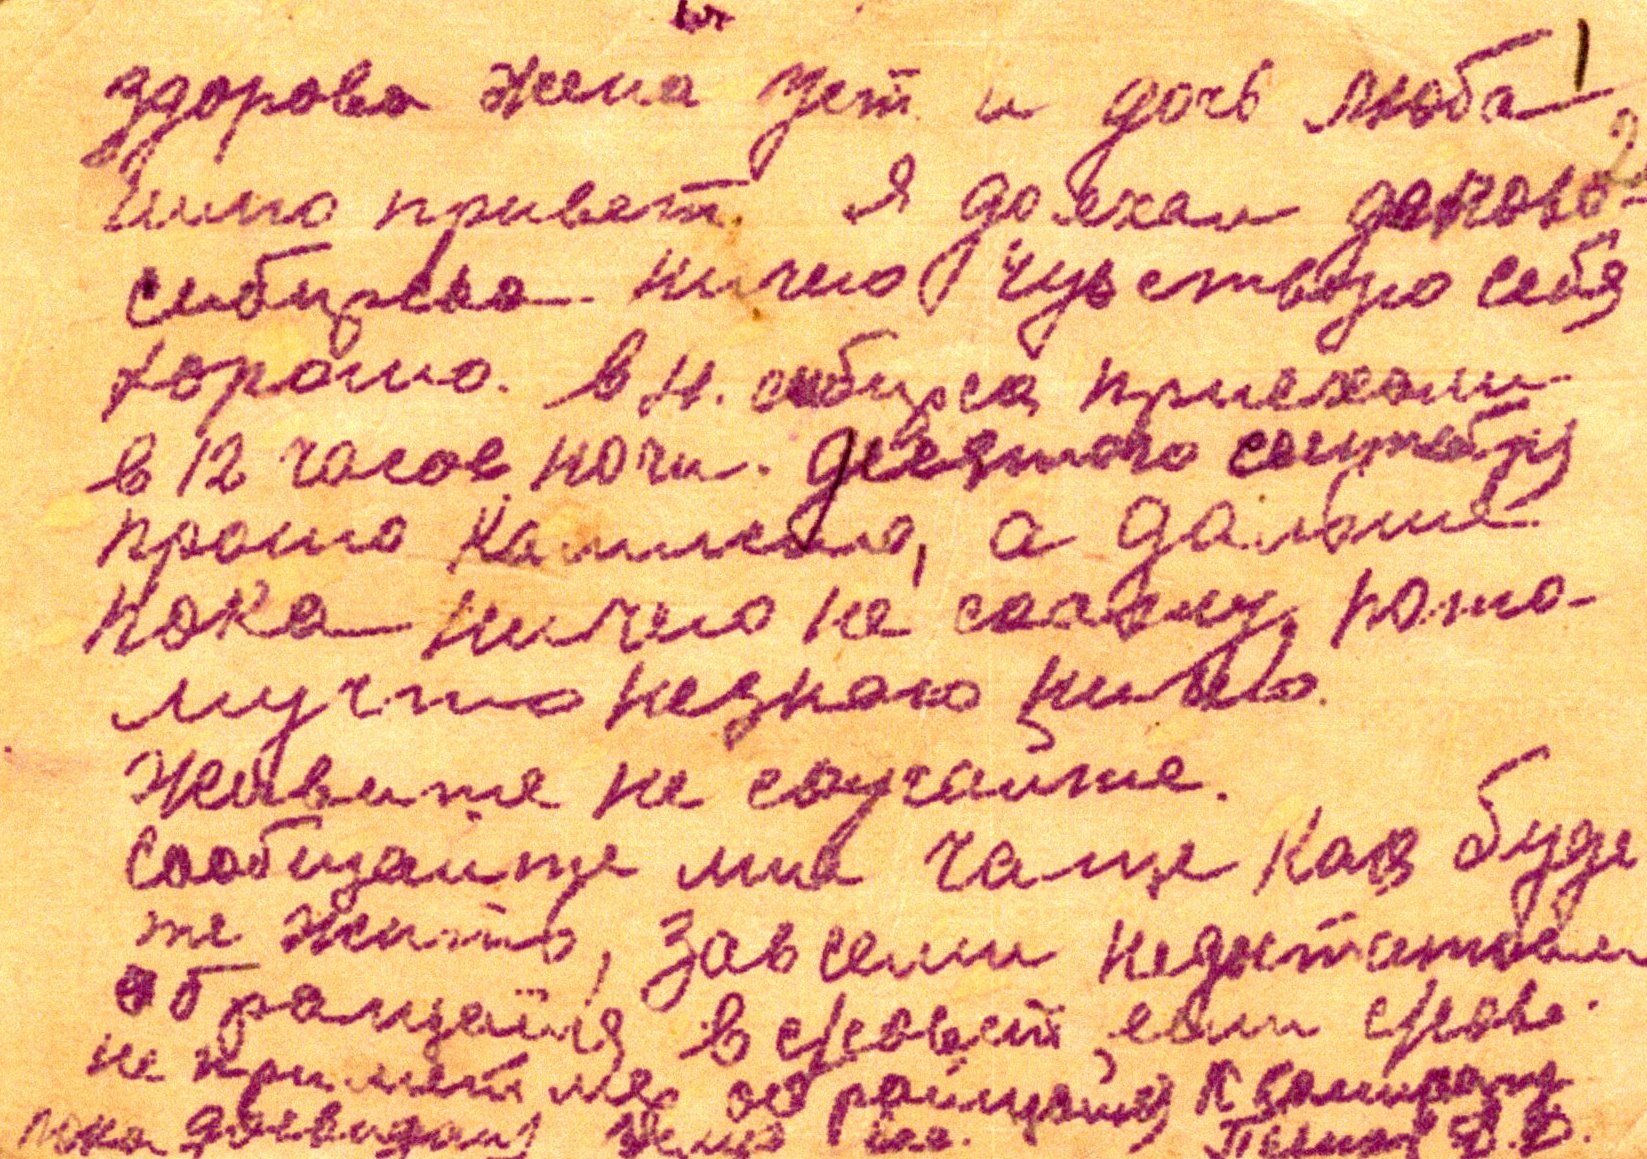 здорово жена Уст. и дочь Люба
шлю привет. Я доехал доново-
сибирска ничего чувствую себя
хорошо. в н. сибирса приехали
в 12 часов ночи. десятого сентября
прошло а дальше
пока ничего не скажу, пото-
мучто незнаю ничего.
Живите не скучайте.
Сообщайте мне чаще как буде
те жить, Завсеми недостатками
обращайся в с/совет если с/сове.
не примет мер. обращайся к
пока досвидания